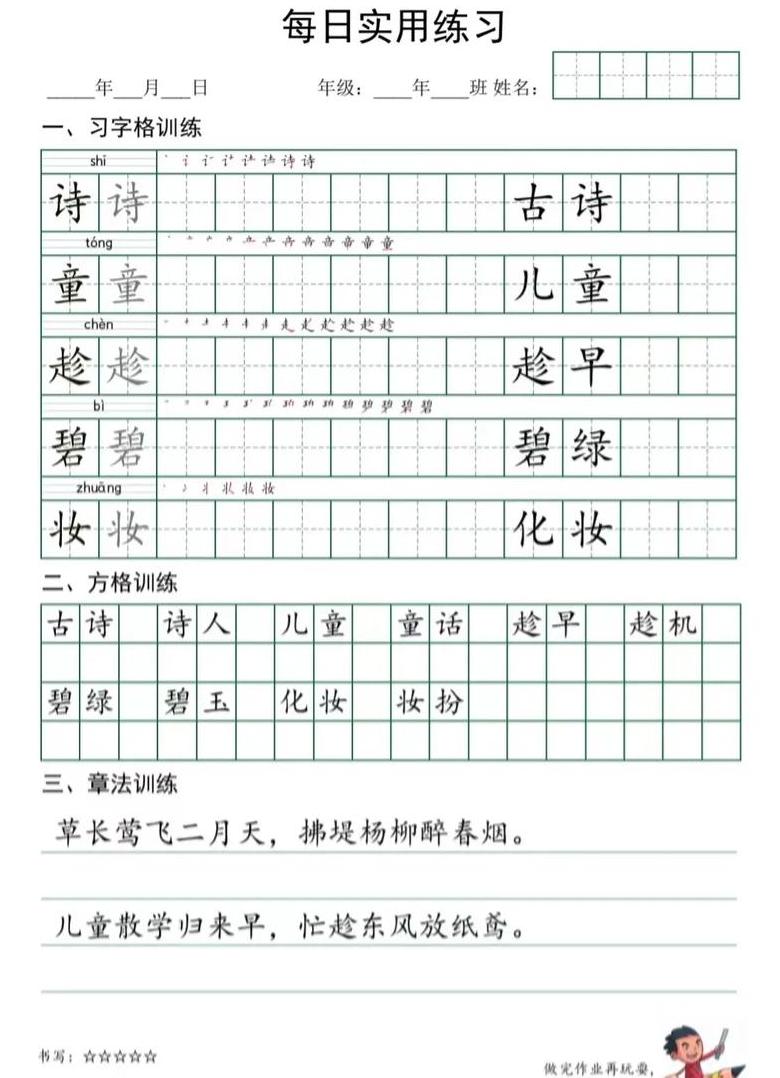 每日实用练习
_____年___月___日 年级：____年____班 姓名：
一、习字格训练
shī
诗 诗 古 诗
tóng
童 童 儿 童
chèn
趁 趁 趁 早
bì
碧 碧 碧 绿
zhuāng
妆 妆 化 妆
二、方格训练
古诗 诗人 儿童 童话 趁早 趁机
碧绿 碧玉 化妆 妆扮
三、章法训练
草长莺飞二月天，拂堤杨柳醉春烟。
儿童散学归来早，忙趁东风放纸鸢。
书写：☆☆☆☆☆
做完作业再玩耍，